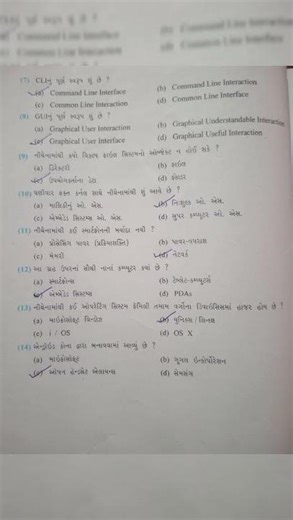 (7) CLIનું પૂર્ણ સ્વરૂપ શું છે ?
(a) Command Line Interface (b) Command Line Interaction
(c) Common Line Interaction (d) Common Line Interface
(8) GUIનું પૂર્ણ સ્વરૂપ શું છે ?
(a) Graphical User Interaction (b) Graphical Understandable Interaction
(c) Graphical User Interface (d) Graphical Useful Interaction
(9) નીચેનામાંથી કયો વિકલ્પ ફાઇલ સિસ્ટમનો ઓબ્જેક્ટ ન હોઈ શકે ?
(a) ડિરેક્ટરી (b) ફાઇલ
(c) ઉપયોગકર્તાના ડેટા (d) ફોલ્ડર
(10) મુક્ત સ્ત્રોત સાથે નીચેનામાંથી શું આવે છે ?
(a) માલિકીનું ઓ. એસ. (b) નિઃશુલ્ક ઓ. એસ.
(c) એમ્બેડેડ સિસ્ટમ્સ ઓ. એસ. (d) સુપર કમ્પ્યુટર ઓ. એસ.
(11) નીચેનામાંથી કઈ સ્માર્ટફોનની મર્યાદા નથી ?
(a) પ્રોસેસિંગ પાવર (પ્રક્રિયાશક્તિ) (b) પાવર-વપરાશ
(c) મેમરી (d) નેટવર્ક
(12) આ ગ્રહ ઉપરનાં સૌથી નાનાં કમ્પ્યુટર કયાં છે ?
(a) સ્માર્ટફોન્સ (b) ટૅબ્લેટ-કમ્પ્યુટર્સ
(c) એમ્બેડેડ સિસ્ટમ્સ (d) PDAs
(13) નીચેનામાંથી કઈ ઓપરેટિંગ સિસ્ટમ ફેમિલી તમામ વર્ગોના ડિવાઇસિસમાં હાજર હોય છે ?
(a) માઇક્રોસોફ્ટ વિન્ડોઝ (b) યુનિક્સ / લિનક્સ
(c) i / OS (d) OS X
(14) એન્ડ્રોઇડ કોના દ્વારા બનાવવામાં આવ્યું છે ?
(a) માઇક્રોસોફ્ટ (b) ગૂગલ ઇન્કોર્પોરેશન
(c) ઓપન હેન્ડસેટ એલાયન્સ (d) સેમસંગ